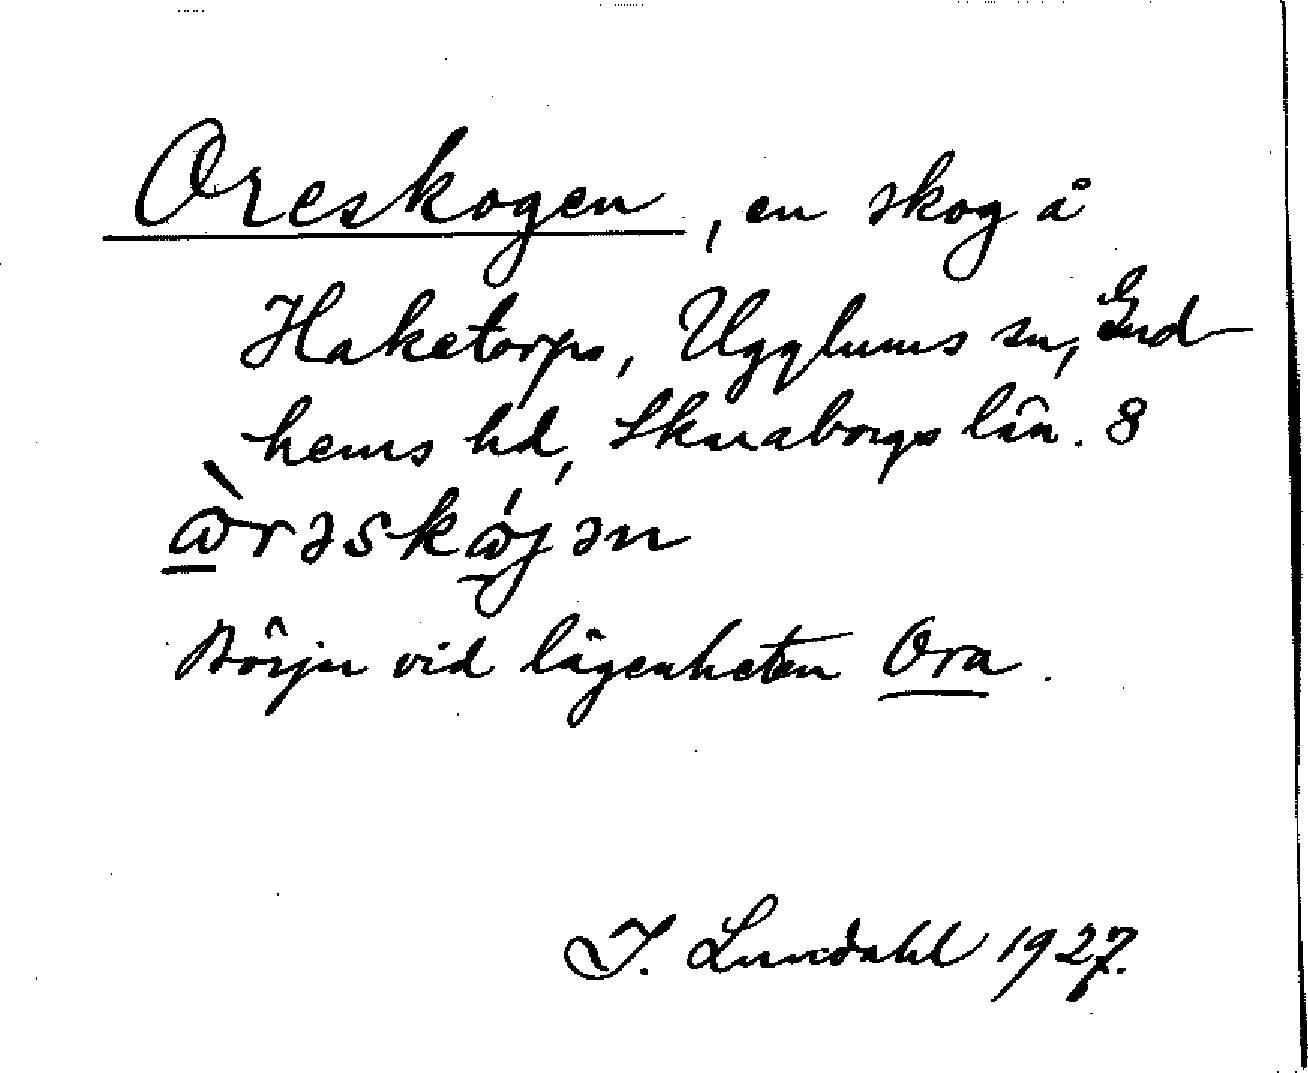 Oreskogen, en skog å
Haketorps, Ugglums sn, Gud
hems hd, Skaraborgs län. 8
Börjar vid lägenheten Ora.
I. Lundahl 1927.